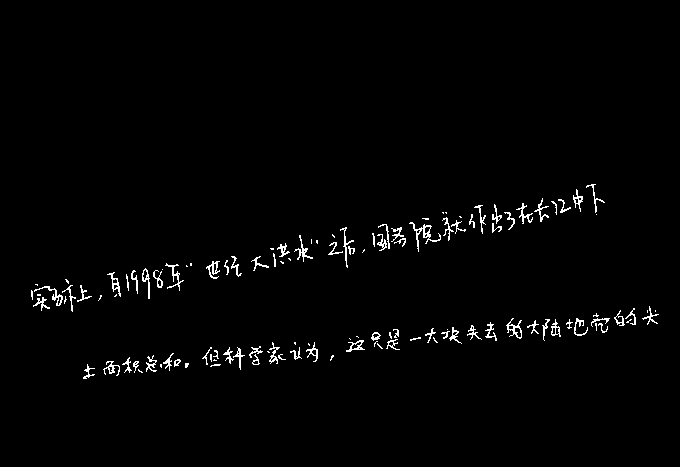 实际上，自1998年“世纪大洪水”之后，国务院就作出了在长江中下
土面积总和。但科学家认为，这只是一大块失去的大陆地壳的尖